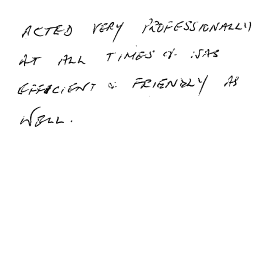 ACTED VERY PROFESSIONALLY
AT ALL TIMES & WAS
EFFICIENT & FRIENDLY AS
WELL.